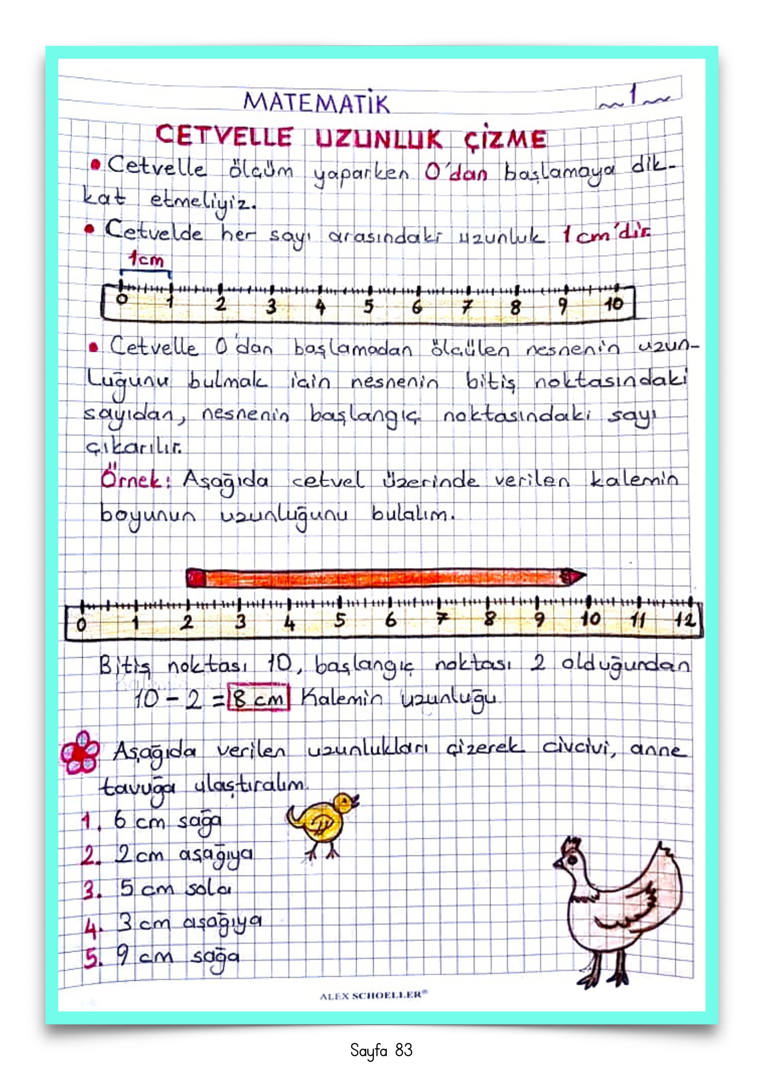 MATEMATİK
1
CETVELLE UZUNLUK ÇİZME
• Cetvelle ölçüm yaparken 0'dan başlamaya dik-
kat etmeliyiz.
• Cetvelde her sayı arasındaki uzunluk 1 cm'dir.
1cm
0 1 2 3 4 5 6 7 8 9 10
• Cetvelle 0'dan başlamadan ölçülen nesnenin uzun-
luğunu bulmak için nesnenin bitiş noktasındaki
sayıdan, nesnenin başlangıç noktasındaki sayı
çıkarılır.
Örnek: Aşağıda cetvel üzerinde verilen kalemin
boyunun uzunluğunu bulalım.
0 1 2 3 4 5 6 7 8 9 10 11 12
Bitiş noktası 10, başlangıç noktası 2 olduğundan
10 - 2 = 8 cm Kalemin uzunluğu
Aşağıda verilen uzunlukları çizerek civcivi, anne
tavuğa ulaştıralım.
1. 6 cm sağa
2. 2 cm aşağıya
3. 5 cm sola
4. 3 cm aşağıya
5. 9 cm sağa
ALEX SCHOELLER®
Sayfa 83